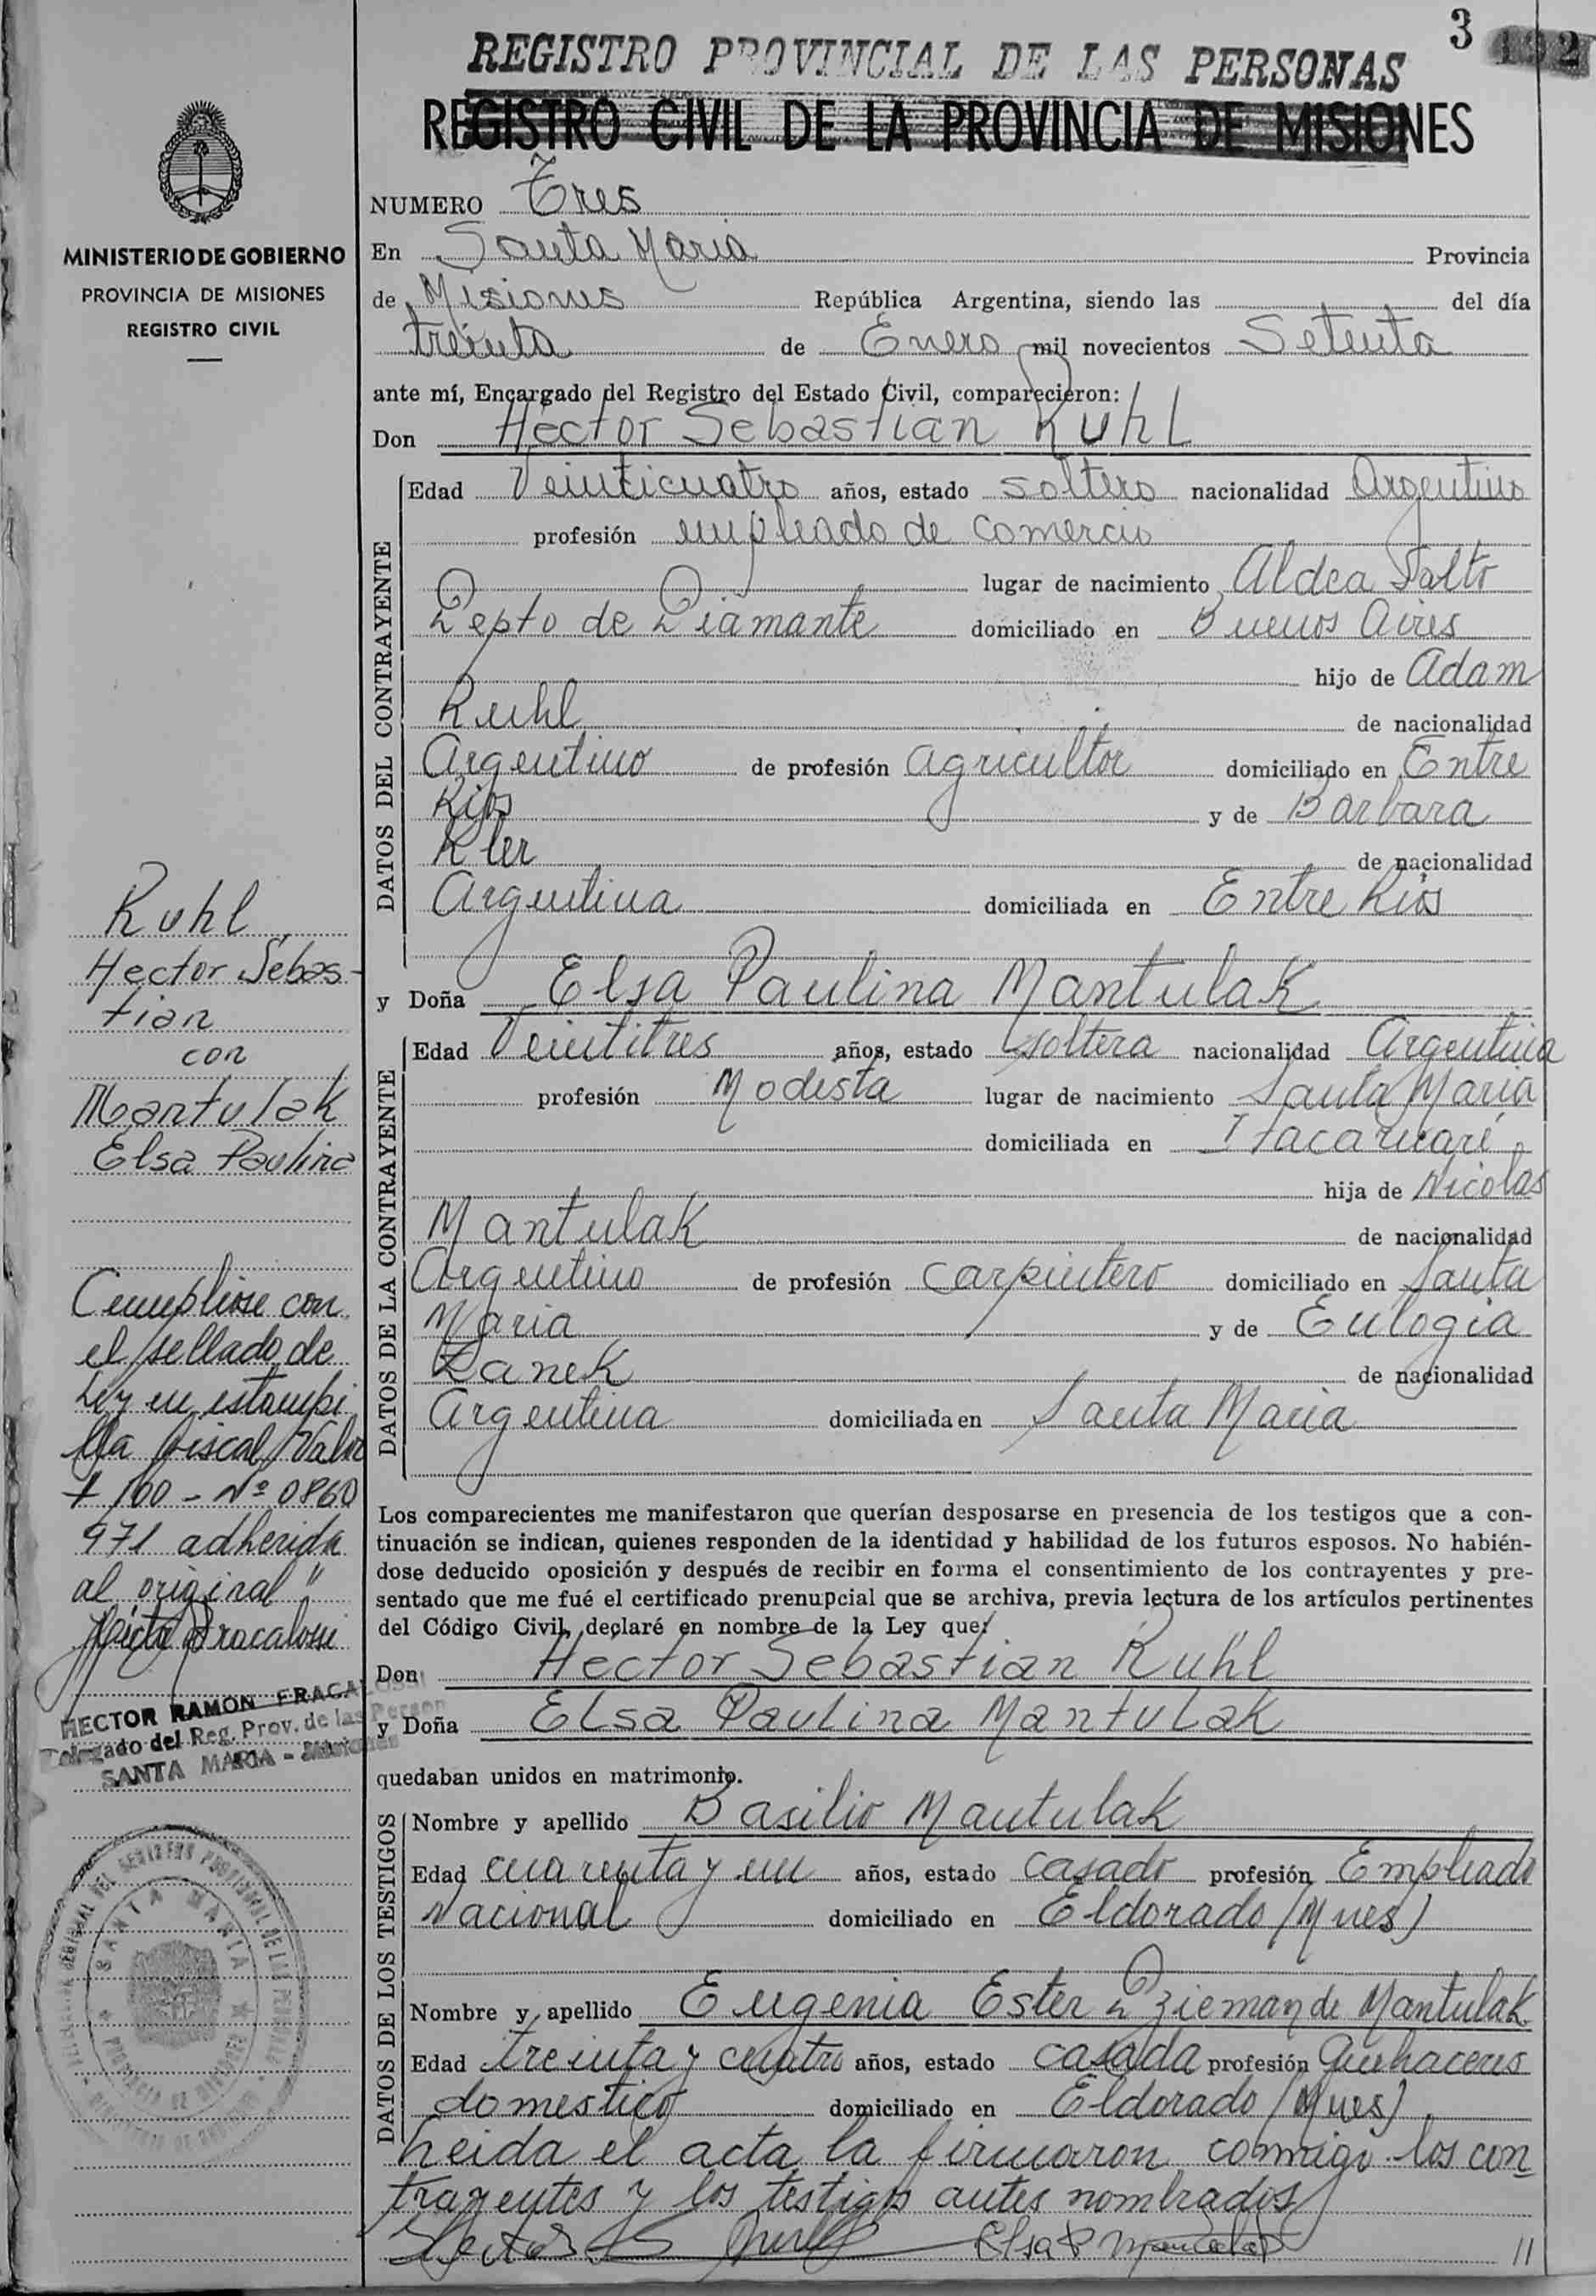 3
132
REGISTRO PROVINCIAL DE LAS PERSONAS
REGISTRO CIVIL DE LA PROVINCIA DE MISIONES
MINISTERIO DE GOBIERNO
PROVINCIA DE MISIONES
REGISTRO CIVIL
NUMERO Tres
En Santa Maria Provincia
de Misiones República Argentina, siendo las del día
treinta de Enero mil novecientos Setenta
ante mí, Encargado del Registro del Estado Civil, comparecieron:
Don Hector Sebastian Ruhl
DATOS DEL CONTRAYENTE
Edad Veinticuatro años, estado soltero nacionalidad Argentino
profesión empleado de comercio
lugar de nacimiento Aldea Salto
Depto de Diamante domiciliado en Buenos Aires
hijo de Adam
Ruhl de nacionalidad
Argentino de profesión agricultor domiciliado en Entre
Rios y de Barbara
Kler de nacionalidad
Argentina domiciliada en Entre Rios
y Doña Elsa Paulina Mantulak
DATOS DE LA CONTRAYENTE
Edad Veintitres años, estado soltera nacionalidad Argentina
profesión Modista lugar de nacimiento Santa Maria
domiciliada en Itacaruaré
hija de Nicolas
Mantulak de nacionalidad
Argentino de profesión carpintero domiciliado en Santa
Maria y de Eulogia
Zanek de nacionalidad
Argentina domiciliada en Santa Maria
Los comparecientes me manifestaron que querían desposarse en presencia de los testigos que a con-
tinuación se indican, quienes responden de la identidad y habilidad de los futuros esposos. No habién-
dose deducido oposición y después de recibir en forma el consentimiento de los contrayentes y pre-
sentado que me fué el certificado prenupcial que se archiva, previa lectura de los artículos pertinentes
del Código Civil, declaré en nombre de la Ley que:
Don Hector Sebastian Ruhl
y Doña Elsa Paulina Mantulak
quedaban unidos en matrimonio.
DATOS DE LOS TESTIGOS
Nombre y apellido Basilio Mantulak
Edad cuarenta y un años, estado casado profesión Empleado
Nacional domiciliado en Eldorado (Mnes)
Nombre y apellido Eugenia Ester Dzieman de Mantulak
Edad treinta y cuatro años, estado casada profesión Quehaceres
domestico domiciliado en Eldorado (Mnes)
Leida el acta la firmaron conmigo los con
trayentes y los testigos antes nombrados
Hector S Ruhl Elsa P Mantulak
Ruhl
Hector Sebas-
tian
con
Mantulak
Elsa Paulina
Cumpliose con
el sellado de
Ley en estampi
lla fiscal Valor
$ 100 - Nº 0860
971 adherida
al original"
HECTOR RAMON FRACALOSSI
Delegado del Reg. Prov. de las Person
SANTA MARIA - Misiones
SANTA MARIA
PROVINCIA DE MISIONES